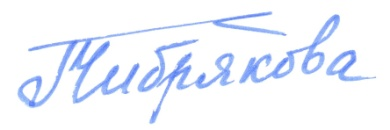 ТЧибрякова